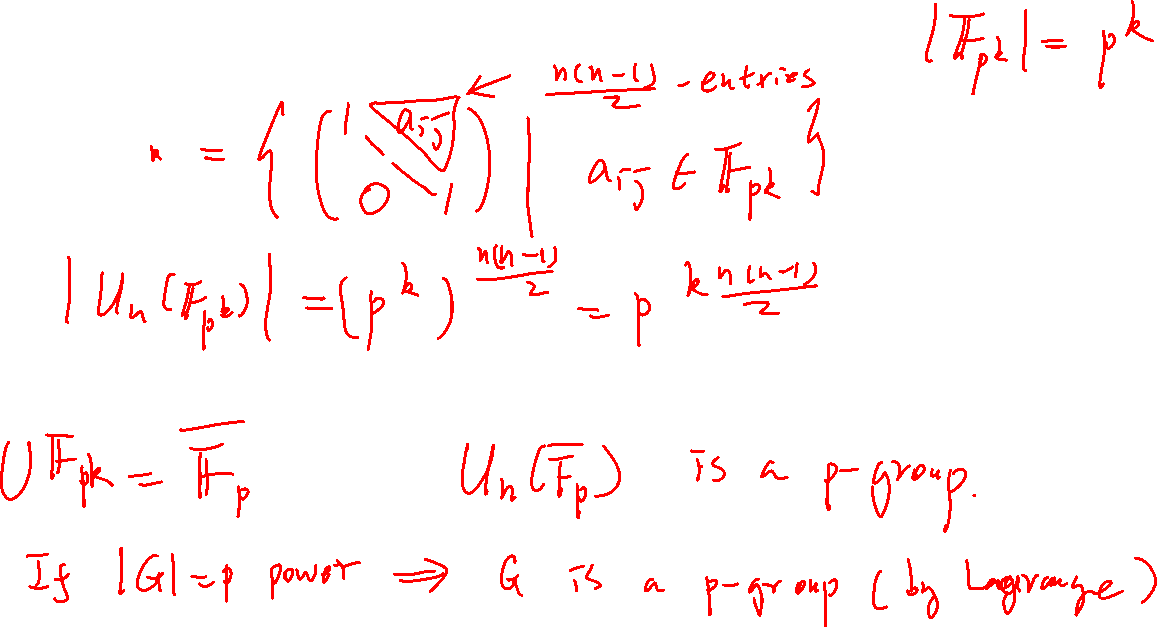 |𝔽_{p^k}| = p^k
n(n-1)/2 - entries
n = { ( 1 a_{ij} 0 1 ) | a_{ij} ∈ 𝔽_{p^k} }
|U_n(𝔽_{p^k})| = (p^k)^{n(n-1)/2} = p^{k n(n-1)/2}
∪ 𝔽_{p^k} = \overline{𝔽_p} U_n(\overline{𝔽_p}) is a p-group.
If |G| = p power ⟹ G is a p-group (by Lagrange)